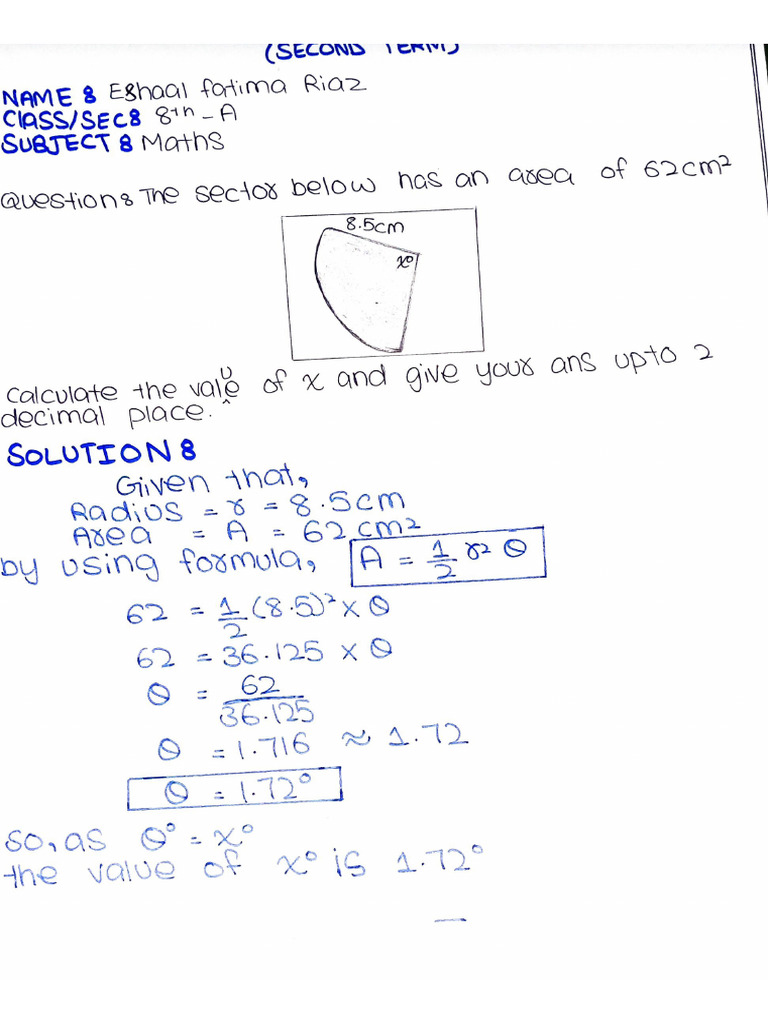 (SECOND TERM)
NAME : Eshaal fatima Riaz
CLASS/SEC: 8th - A
SUBJECT : Maths
Question: The sector below has an area of 62cm²
8.5cm
x°
Calculate the value of x and give your ans upto 2
decimal place.
SOLUTION :
Given that,
Radius = r = 8.5cm
Area = A = 62cm²
by using formula, A = 1/2 r² θ
62 = 1/2 (8.5)² x θ
62 = 36.125 x θ
θ = 62/36.125
θ = 1.716 ≈ 1.72
θ = 1.72°
So, as θ° = x°
the value of x° is 1.72°